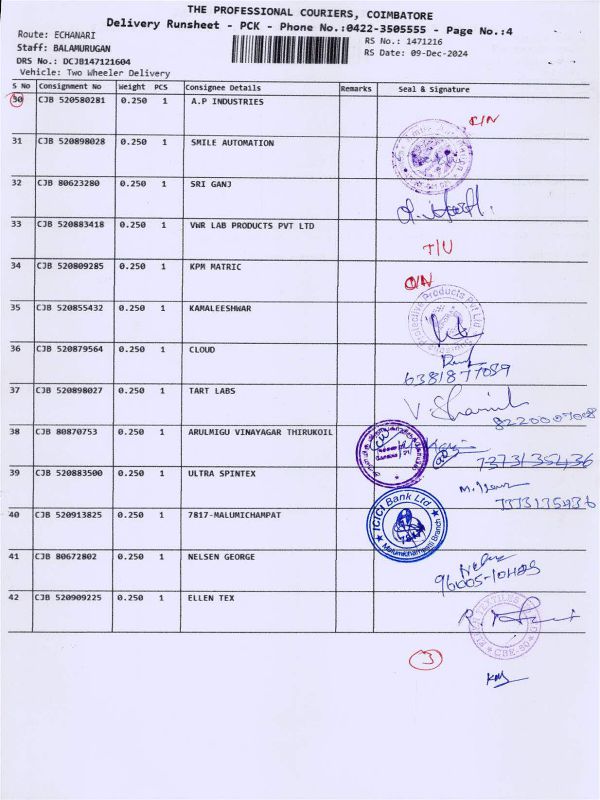 THE PROFESSIONAL COURIERS, COIMBATORE
Delivery Runsheet - PCK - Phone No.:0422-3505555 - Page No.:4
Route: ECHANARI
RS No.: 1471216
Staff: BALAMURUGAN
RS Date: 09-Dec-2024
DRS No.: DCJB147121604
Vehicle: Two Wheeler Delivery
S No Consignment No Weight PCS Consignee Details Remarks Seal & Signature
30 CJB 520580281 0.250 1 A.P INDUSTRIES
31 CJB 520898028 0.250 1 SMILE AUTOMATION
32 CJB 80623280 0.250 1 SRI GANJ
33 CJB 520883418 0.250 1 VWR LAB PRODUCTS PVT LTD
T/U
34 CJB 520809285 0.250 1 KPM MATRIC
35 CJB 520855432 0.250 1 KAMALEESHWAR
Protective Products Pvt Ltd
36 CJB 520879564 0.250 1 CLOUD
6381877089
37 CJB 520898027 0.250 1 TART LABS
38 CJB 80870753 0.250 1 ARULMIGU VINAYAGAR THIRUKOIL
7373135436
39 CJB 520883500 0.250 1 ULTRA SPINTEX
7373135436
40 CJB 520913825 0.250 1 7817-MALUMICHAMPAT
ICICI Bank Ltd
Malumichampatti Branch
41 CJB 80672802 0.250 1 NELSEN GEORGE
42 CJB 520909225 0.250 1 ELLEN TEX
3